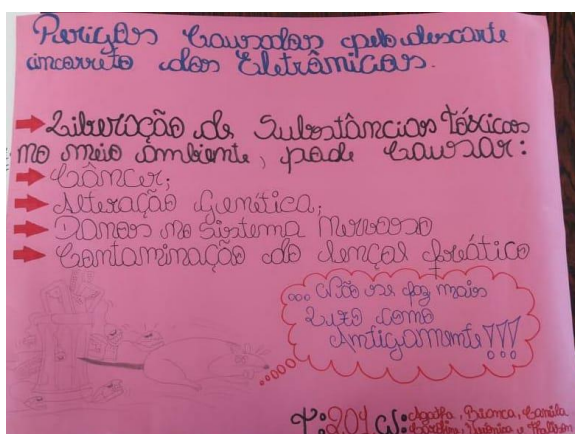 Perigos Causados pelo descarte
incorreto dos Eletrônicos.
Liberação de Substâncias Tóxicas
no meio ambiente, pode Causar:
Câncer;
Alteração Genética;
Danos no Sistema Nervoso
Contaminação do lençol freático
... Não se faz mais
Lixo como
Antigamente!!!
T:201 N: Agatha, Bianca, Camila
Caroline, Verônica e Thalison